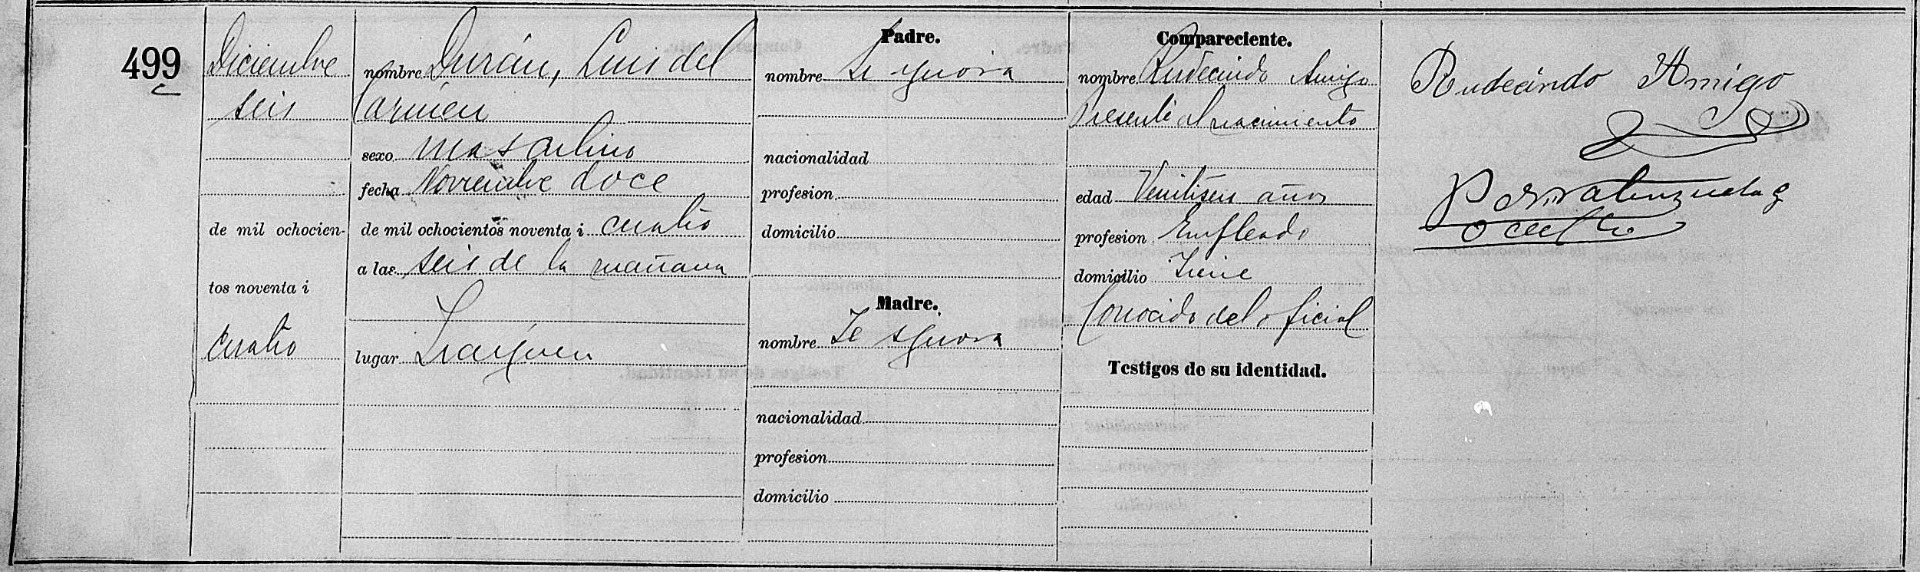 499
Diciembre
seis
de mil ochocien-
tos noventa i
cuatro
nombre Durán, Luis del
Carmen
sexo masculino
fecha Noviembre doce
de mil ochocientos noventa i cuatro
a las seis de la mañana
lugar Traiguen
Padre.
nombre Se ignora
nacionalidad
profesion
domicilio
Madre.
nombre Se ignora
nacionalidad
profesion
domicilio
Compareciente.
nombre Rudecindo Amigo
Presente al nacimiento
edad Veintiseis años
profesion Empleado
domicilio Tiene
Conocido del oficial
Testigos de su identidad.
Rudecindo Amigo